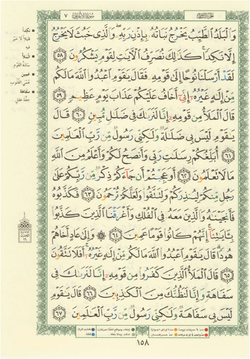 وَالْبَلَدُ الطَّيِّبُ يَخْرُجُ نَبَاتُهُ بِإِذْنِ رَبِّهِ وَالَّذِي خَبُثَ لَا يَخْرُجُ
إِلَّا نَكِدًا كَذَٰلِكَ نُصَرِّفُ الْآيَاتِ لِقَوْمٍ يَشْكُرُونَ ٥٨
لَقَدْ أَرْسَلْنَا نُوحًا إِلَىٰ قَوْمِهِ فَقَالَ يَا قَوْمِ اعْبُدُوا اللَّهَ مَا لَكُم
مِّنْ إِلَٰهٍ غَيْرُهُ إِنِّي أَخَافُ عَلَيْكُمْ عَذَابَ يَوْمٍ عَظِيمٍ ٥٩
قَالَ الْمَلَأُ مِن قَوْمِهِ إِنَّا لَنَرَاكَ فِي ضَلَالٍ مُّبِينٍ ٦٠
قَالَ يَا قَوْمِ لَيْسَ بِي ضَلَالَةٌ وَلَٰكِنِّي رَسُولٌ مِّن رَّبِّ الْعَالَمِينَ
٦١ أُبَلِّغُكُمْ رِسَالَاتِ رَبِّي وَأَنصَحُ لَكُمْ وَأَعْلَمُ مِنَ اللَّهِ
مَا لَا تَعْلَمُونَ ٦٢ أَوَعَجِبْتُمْ أَن جَاءَكُمْ ذِكْرٌ مِّن رَّبِّكُمْ عَلَىٰ
رَجُلٍ مِّنكُمْ لِيُنذِرَكُمْ وَلِتَتَّقُوا وَلَعَلَّكُمْ تُرْحَمُونَ ٦٣ فَكَذَّبُوهُ
فَأَنجَيْنَاهُ وَالَّذِينَ مَعَهُ فِي الْفُلْكِ وَأَغْرَقْنَا الَّذِينَ كَذَّبُوا
بِآيَاتِنَا إِنَّهُمْ كَانُوا قَوْمًا عَمِينَ ٦٤ وَإِلَىٰ عَادٍ أَخَاهُمْ
هُودًا قَالَ يَا قَوْمِ اعْبُدُوا اللَّهَ مَا لَكُم مِّنْ إِلَٰهٍ غَيْرُهُ أَفَلَا تَتَّقُونَ
٦٥ قَالَ الْمَلَأُ الَّذِينَ كَفَرُوا مِن قَوْمِهِ إِنَّا لَنَرَاكَ فِي
سَفَاهَةٍ وَإِنَّا لَنَظُنُّكَ مِنَ الْكَاذِبِينَ ٦٦ قَالَ يَا قَوْمِ
لَيْسَ بِي سَفَاهَةٌ وَلَٰكِنِّي رَسُولٌ مِّن رَّبِّ الْعَالَمِينَ ٦٧
١٥٨